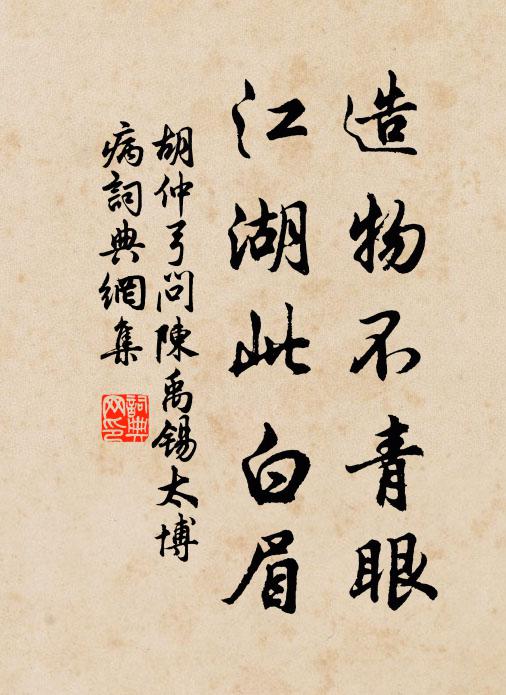 造物不青眼
江湖此白眉
胡仲弓問陳禹锡太博
病詞典網集
詞典网印